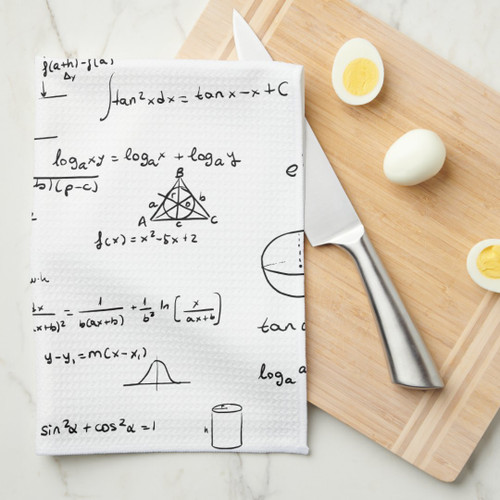 f(a+h)-f(a)
∫tan²xdx = tanx-x+C
logₐxy = logₐx + logₐy
b)(p-c)
e
B
a r b
o
A c C
f(x) = x²-5x+2
w·h
dx / (ax+b)² = 1 / b(ax+b) + 1/b² ln [x / ax+b]
y-y₁ = m(x-x₁)
tan
logₐ a
sin²α + cos²α = 1
h